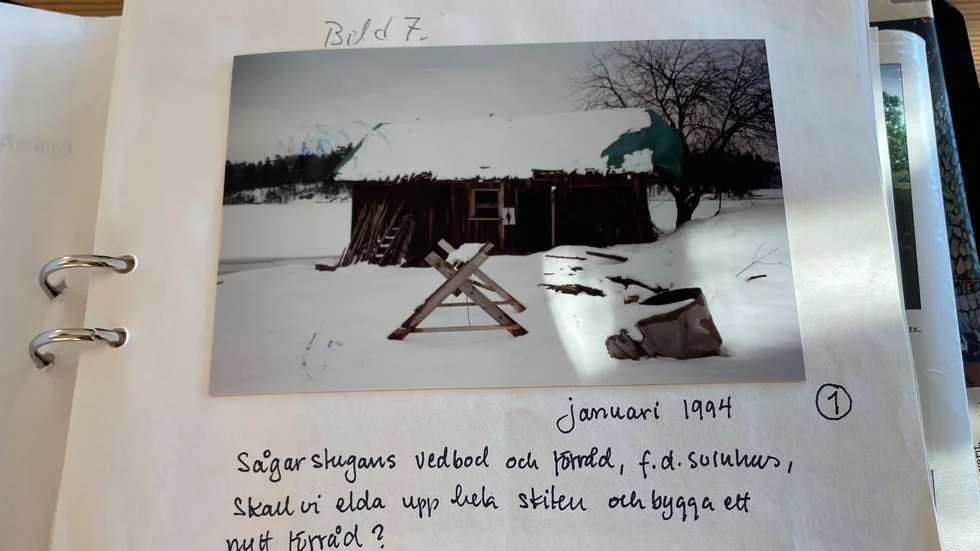 Bild 7.
januari 1994
1
Sågarstugans vedbod och förråd, f.d. svinhus,
skall vi elda upp hela skiten och bygga ett
nytt förråd?
ts.